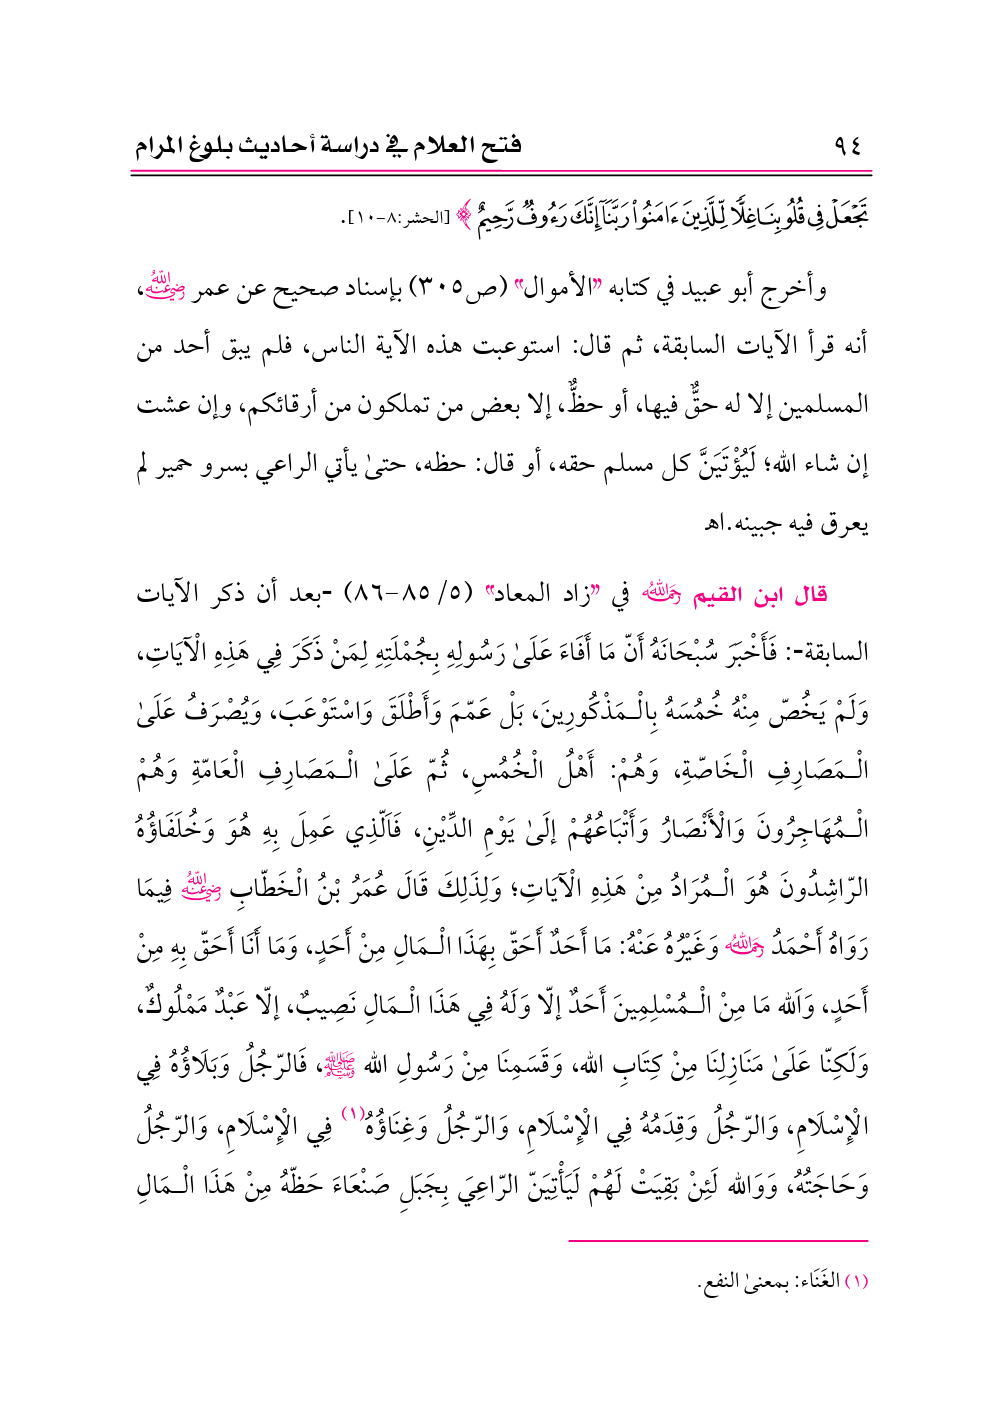 ٩٤ فتح العلام في دراسة أحاديث بلوغ المرام
تَجْعَلْ فِى قُلُوبِنَا غِلًّا لِّلَّذِينَ ءَامَنُوا۟ رَبَّنَآ إِنَّكَ رَءُوفٌ رَّحِيمٌ ﴾ [الحشر:٨-١٠].
وأخرج أبو عبيد في كتابه "الأموال" (ص٣٠٥) بإسناد صحيح عن عمر رضي الله عنه،
أنه قرأ الآيات السابقة، ثم قال: استوعبت هذه الآية الناس، فلم يبق أحد من
المسلمين إلا له حقٌّ فيها، أو حظٌّ، إلا بعض من تملكون من أرقائكم، وإن عشت
إن شاء الله؛ لَيُؤْتَيَنَّ كل مسلم حقه، أو قال: حظه، حتىٰ يأتي الراعي بسرو حمير لم
يعرق فيه جبينه.اهـ
قال ابن القيم رحمه الله في "زاد المعاد" (٥/ ٨٥-٨٦) -بعد أن ذكر الآيات
السابقة-: فَأَخْبَرَ سُبْحَانَهُ أَنّ مَا أَفَاءَ عَلَىٰ رَسُولِهِ بِجُمْلَتِهِ لِمَنْ ذَكَرَ فِي هَذِهِ الْآيَاتِ،
وَلَمْ يَخُصّ مِنْهُ خُمُسَهُ بِالْـمَذْكُورِينَ، بَلْ عَمّمَ وَأَطْلَقَ وَاسْتَوْعَبَ، وَيُصْرَفُ عَلَىٰ
الْـمَصَارِفِ الْخَاصّةِ، وَهُمْ: أَهْلُ الْخُمُسِ، ثُمّ عَلَىٰ الْـمَصَارِفِ الْعَامّةِ وَهُمْ
الْـمُهَاجِرُونَ وَالْأَنْصَارُ وَأَتْبَاعُهُمْ إلَىٰ يَوْمِ الدِّيْنِ، فَاَلّذِي عَمِلَ بِهِ هُوَ وَخُلَفَاؤُهُ
الرّاشِدُونَ هُوَ الْـمُرَادُ مِنْ هَذِهِ الْآيَاتِ؛ وَلِذَلِكَ قَالَ عُمَرُ بْنُ الْخَطّابِ رضي الله عنه فِيمَا
رَوَاهُ أَحْمَدُ رحمه الله وَغَيْرُهُ عَنْهُ: مَا أَحَدٌ أَحَقّ بِهَذَا الْـمَالِ مِنْ أَحَدٍ، وَمَا أَنَا أَحَقّ بِهِ مِنْ
أَحَدٍ، وَاَلله مَا مِنْ الْـمُسْلِمِينَ أَحَدٌ إلّا وَلَهُ فِي هَذَا الْـمَالِ نَصِيبٌ، إلّا عَبْدٌ مَمْلُوكٌ،
وَلَكِنّا عَلَىٰ مَنَازِلِنَا مِنْ كِتَابِ الله، وَقَسَمِنَا مِنْ رَسُولِ الله ﷺ، فَالرّجُلُ وَبَلَاؤُهُ فِي
الْإِسْلَامِ، وَالرّجُلُ وَقِدَمُهُ فِي الْإِسْلَامِ، وَالرّجُلُ وَغِنَاؤُهُ(١) فِي الْإِسْلَامِ، وَالرّجُلُ
وَحَاجَتُهُ، وَوَالله لَئِنْ بَقِيَتْ لَهُمْ لَيَأْتِيَنّ الرّاعِيَ بِجَبَلِ صَنْعَاءَ حَظّهُ مِنْ هَذَا الْـمَالِ
(١) الغَنَاء: بمعنىٰ النفع.